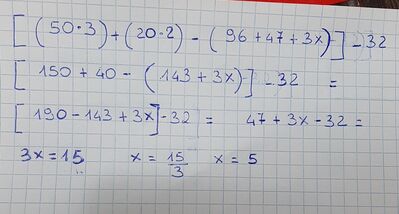 [(50·3)+(20·2) - (96 + 47 + 3x)] - 32
[150 + 40 - (143 + 3x)] - 32 =
[190 - 143 + 3x] - 32 = 47 + 3x - 32 =
3x = 15 x = 15/3 x = 5